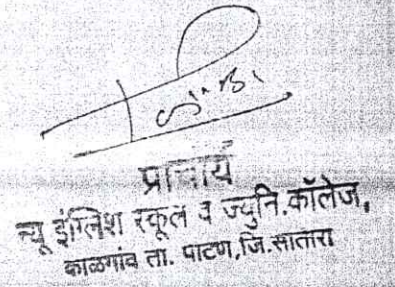 प्राचार्य
न्यू इंग्लिश स्कूल व ज्युनि.कॉलेज,
काळगांव ता. पाटण,जि.सातारा